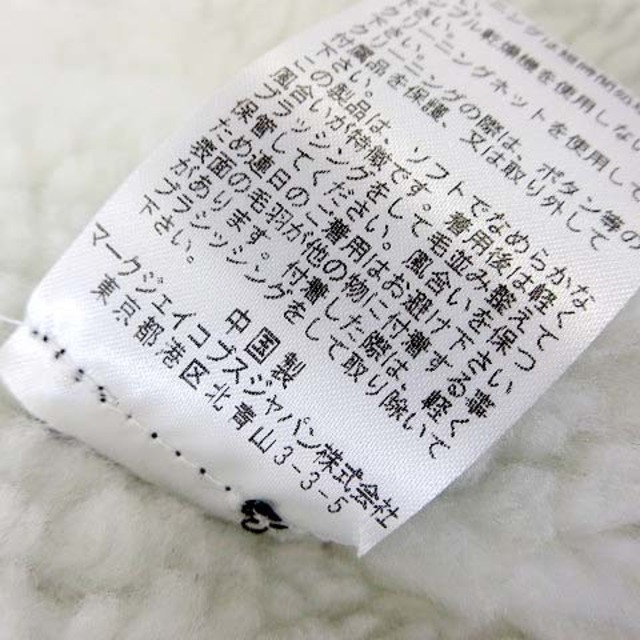 ンブル乾燥機を使用しない
下さい。
クリーニングネットを使用して
下さい。
クリーニングの際は、ボタン等の
付属品を保護、又は取り外して
下さい。
この製品は、ソフトでなめらかな
風合いが特徴です。着用後は軽く
ブラッシングをして毛並み整えて
保管してください。風合いを保つ
ため連日のご着用はお避け下さい。
表面の毛羽が他の物に付着する事
があります。付着した際は、軽く
ブラシッシングをして取り除いて
下さい。
中国製
マークジェイコブスジャパン株式会社
東京都港区北青山3-3-5